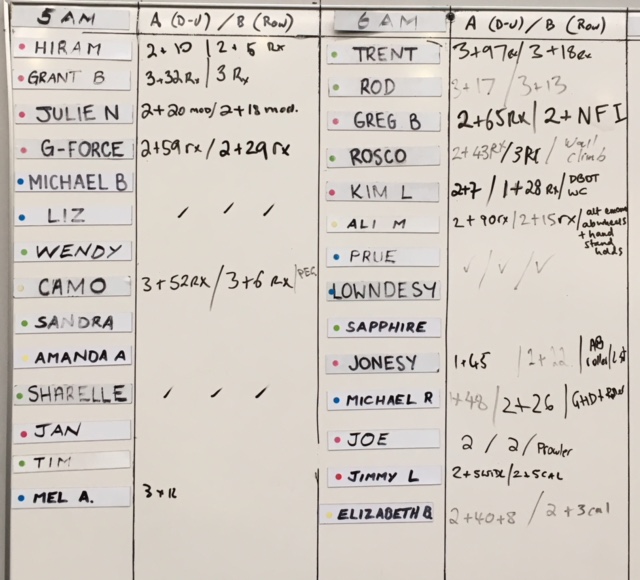 5 AM A (D-U) / B (Row)
HIRAM 2+10 | 2+5 Rx
GRANT B 3+32Rx | 3 Rx
JULIE N 2+20 mod/2+18 mod.
G-FORCE 2+59rx / 2+29 rx
MICHAEL B
LIZ / / /
WENDY
CAMO 3+52Rx / 3+6 Rx / PEG
SANDRA
AMANDA A
SHARELLE / / /
JAN
TIM
MEL A. 3+
6 AM A (D-U) / B (Row)
TRENT 3+97Rx / 3+18Rx
ROD 3+17 / 3+13
GREG B 2+65Rx / 2+NFI
ROSCO 2+43Rx / / Wall
climb
KIM L 2+7 / 1+28 Rx / DBOT
WC
ALI M 2+90rx / 2+15rx /
+ hand
stand
holds
PRUE √ / √ / √
LOWNDESY
SAPPHIRE
JONESY 1+45 / 2+22 | AB
MICHAEL R +48 / 2+26 | GHD+
JOE 2 / 2 / Prowler
JIMMY L 2+5 /2+5CAL
ELIZABETH B 2+40+8 / 2+3cal